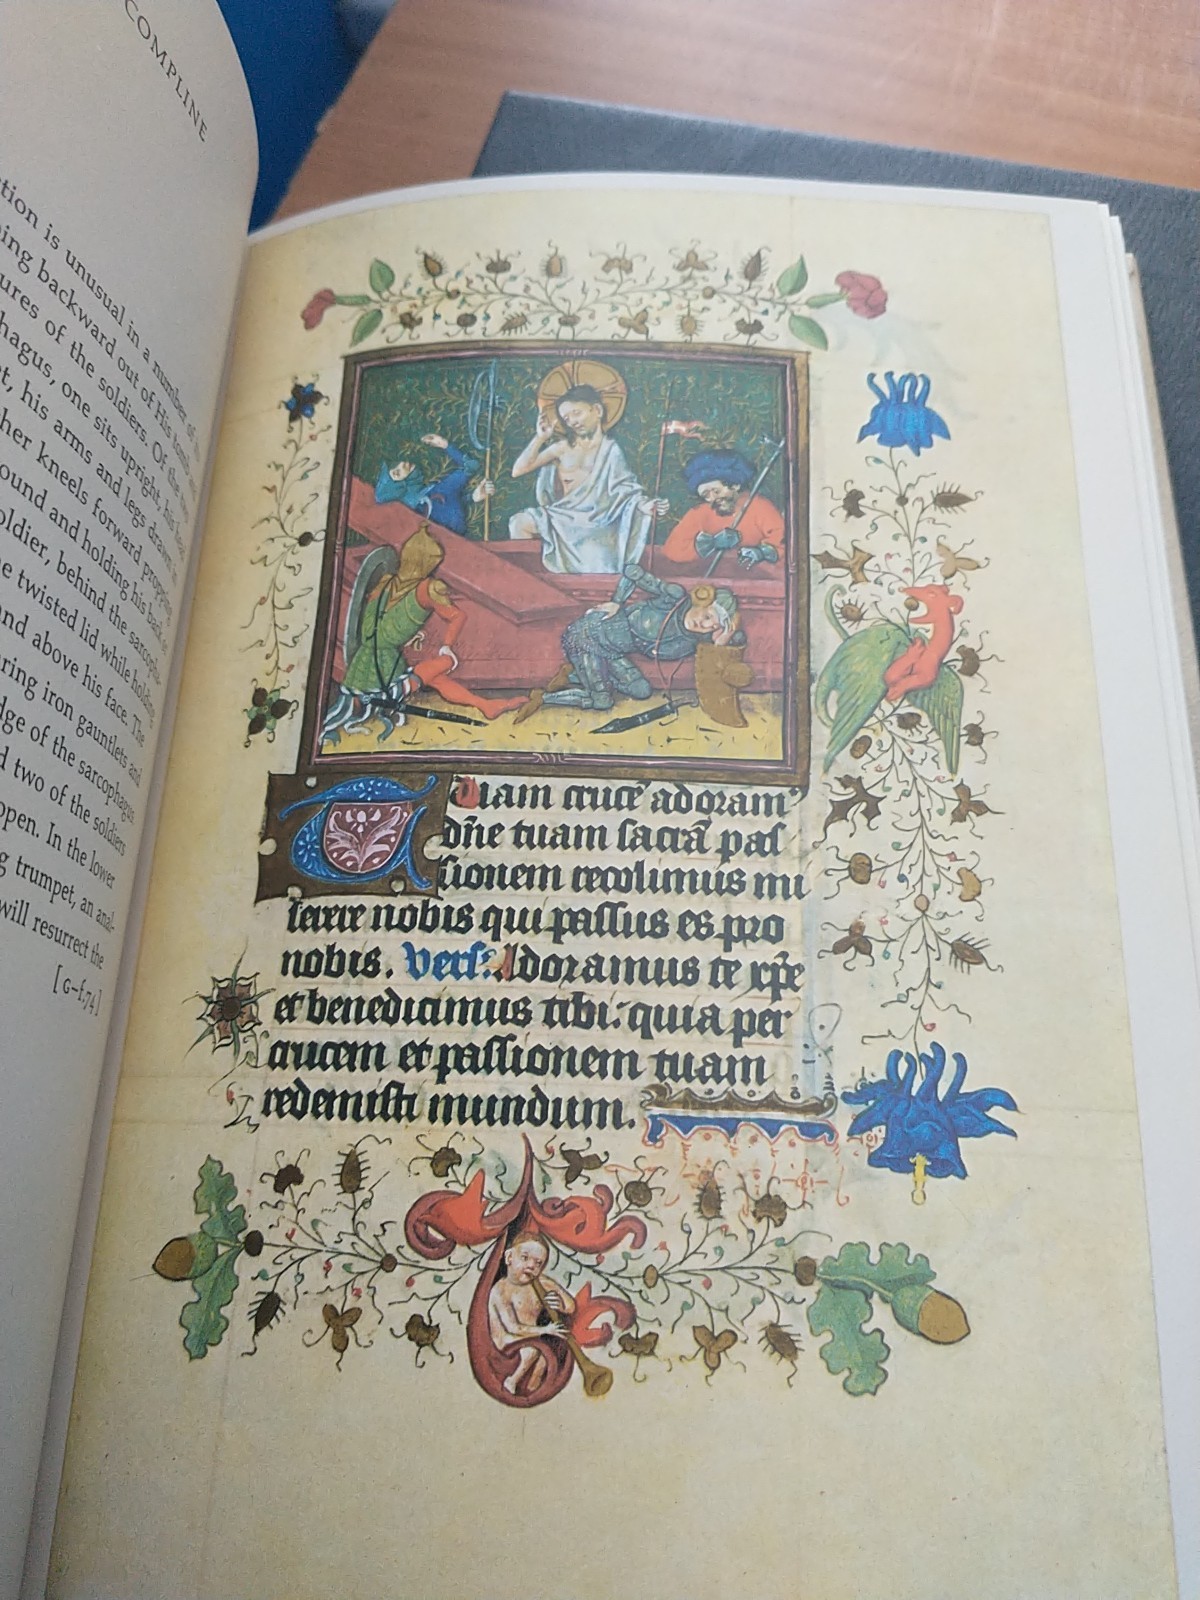 COMPLINE
tion is unusual in a number of
ing backward out of His tomb
ures of the soldiers. Of the
hagus, one sits upright, his
t, his arms and legs drawn
her kneels forward propping
ound and holding his
oldier, behind the sarcopha-
e twisted lid while holding
nd above his face. The
ring iron gauntlets and
dge of the sarcophagus
d two of the soldiers
open. In the lower
g trumpet, an anal-
will resurrect the
[G–f.74]
Tuam crucē adoram⁹
dn̄e tuam sacrā pas
sionem recolimus mi
serere nobis qui passus es pro
nobis. Vers: Adoramus te xp̄e
et benedicimus tibi: quia per
crucem et passionem tuam
redemisti mundum.